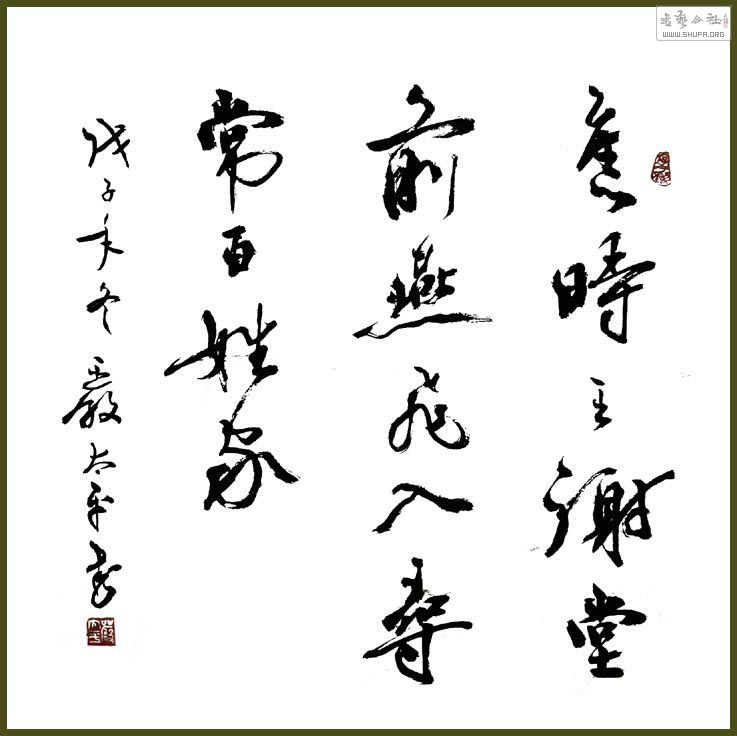 舊時王謝堂
前燕飛入尋
常百姓家
戊子年冬嚴太平書
書藝公社
WWW.SHUFA.ORG